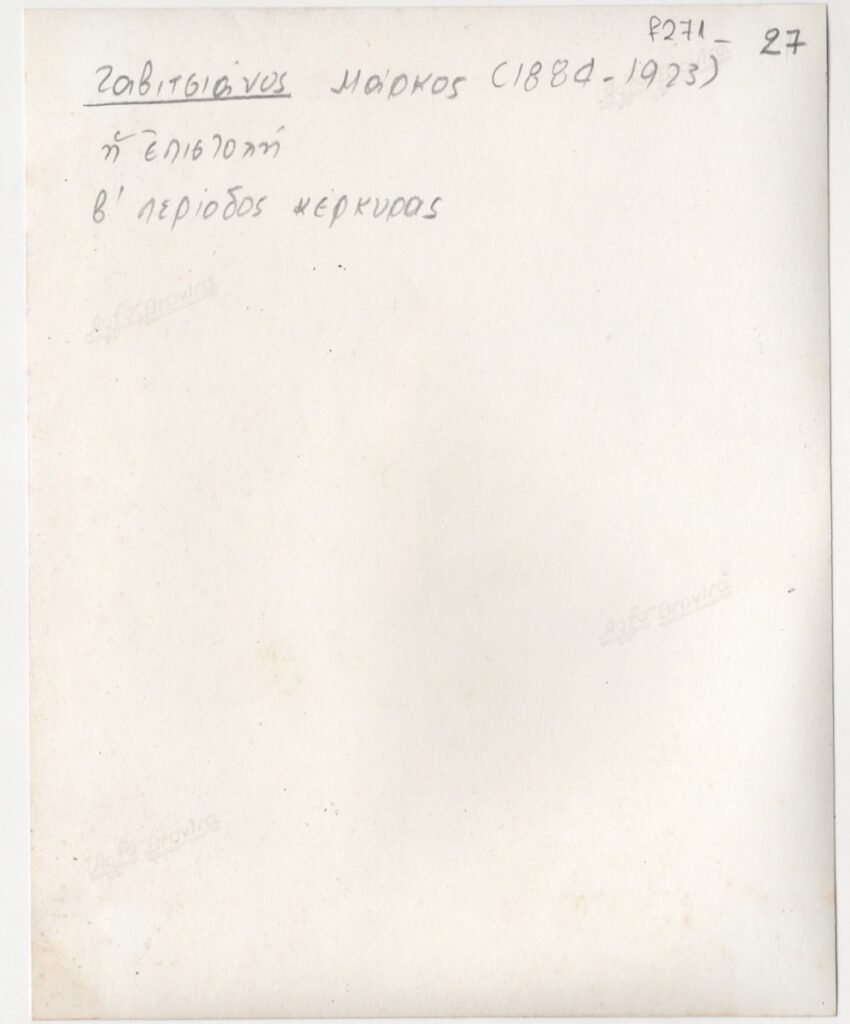 f271- 27
Ζαβιτσιάνος Μάρκος (1884-1923)
ἡ ἐπιστολή
β' περίοδος κέρκυρας
Agfa Brovira
Agfa Brovira
Agfa Brovira